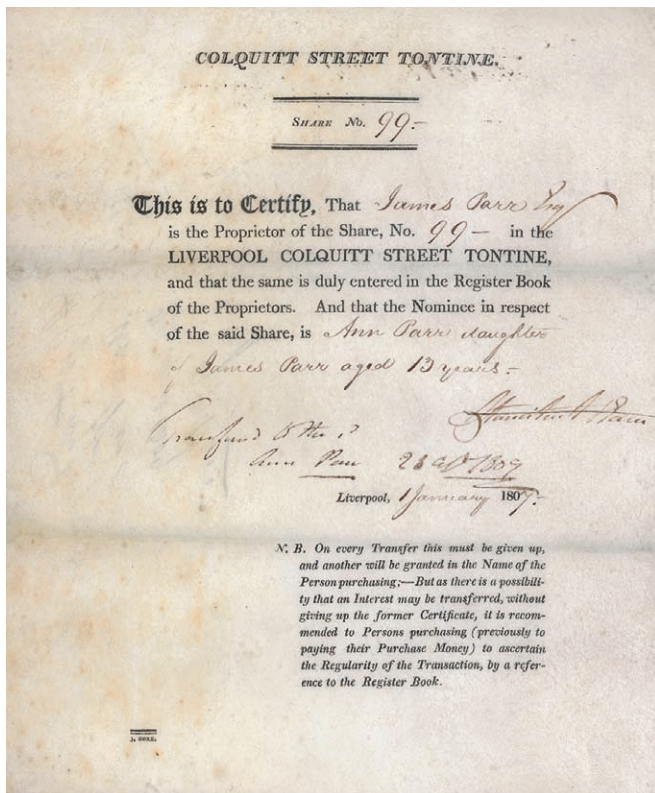 COLQUITT STREET TONTINE.
SHARE No. 99
This is to Certify, That James Parr Esq
is the Proprietor of the Share, No. 99 — in the
LIVERPOOL COLQUITT STREET TONTINE,
and that the same is duly entered in the Register Book
of the Proprietors. And that the Nominee in respect
of the said Share, is Ann Parr daughter
of James Parr aged 13 years
Ann Parr 1809
Liverpool, 1 January 1807
N. B. On every Transfer this must be given up,
and another will be granted in the Name of the
Person purchasing;—But as there is a possibili-
ty that an Interest may be transferred, without
giving up the former Certificate, it is recom-
mended to Persons purchasing (previously to
paying their Purchase Money) to ascertain
the Regularity of the Transaction, by a refer-
ence to the Register Book.
J. GORE.